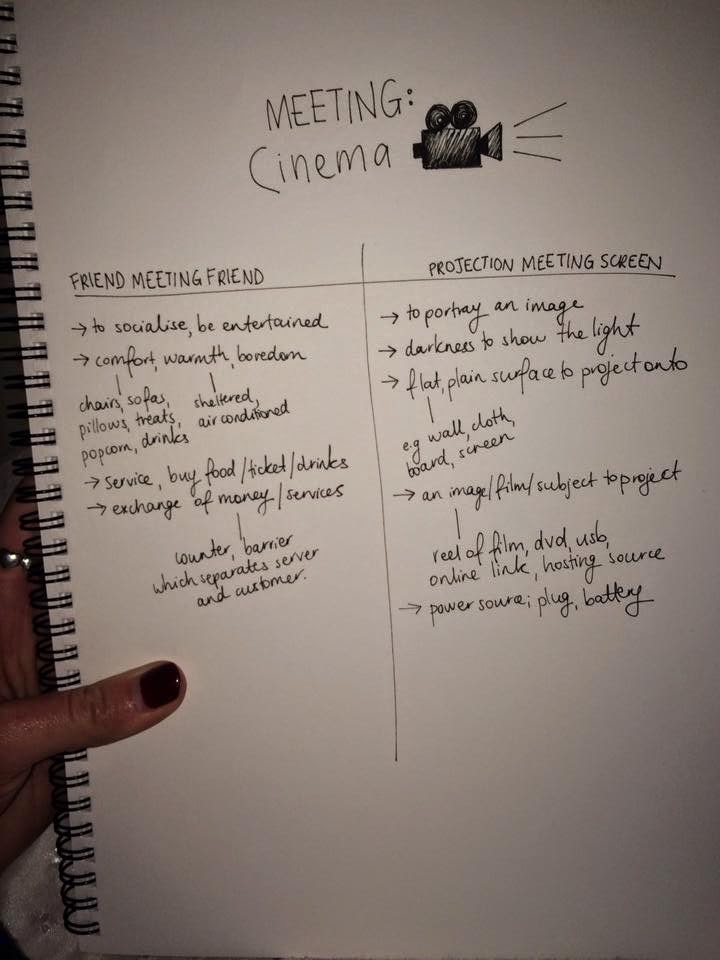 MEETING:
Cinema
FRIEND MEETING FRIEND
→ to socialise, be entertained
→ comfort, warmth, boredom
chairs, sofas,
pillows, treats,
popcorn, drinks
sheltered,
air conditioned
→ service, buy food/ticket/drinks
→ exchange of money/services
counter, barrier
which separates server
and customer.
PROJECTION MEETING SCREEN
→ to portray an image
→ darkness to show the light
→ flat, plain surface to project onto
e.g wall, cloth,
board, screen
→ an image/film/subject to project
reel of film, dvd, usb,
online link, hosting source
→ power source; plug, battery